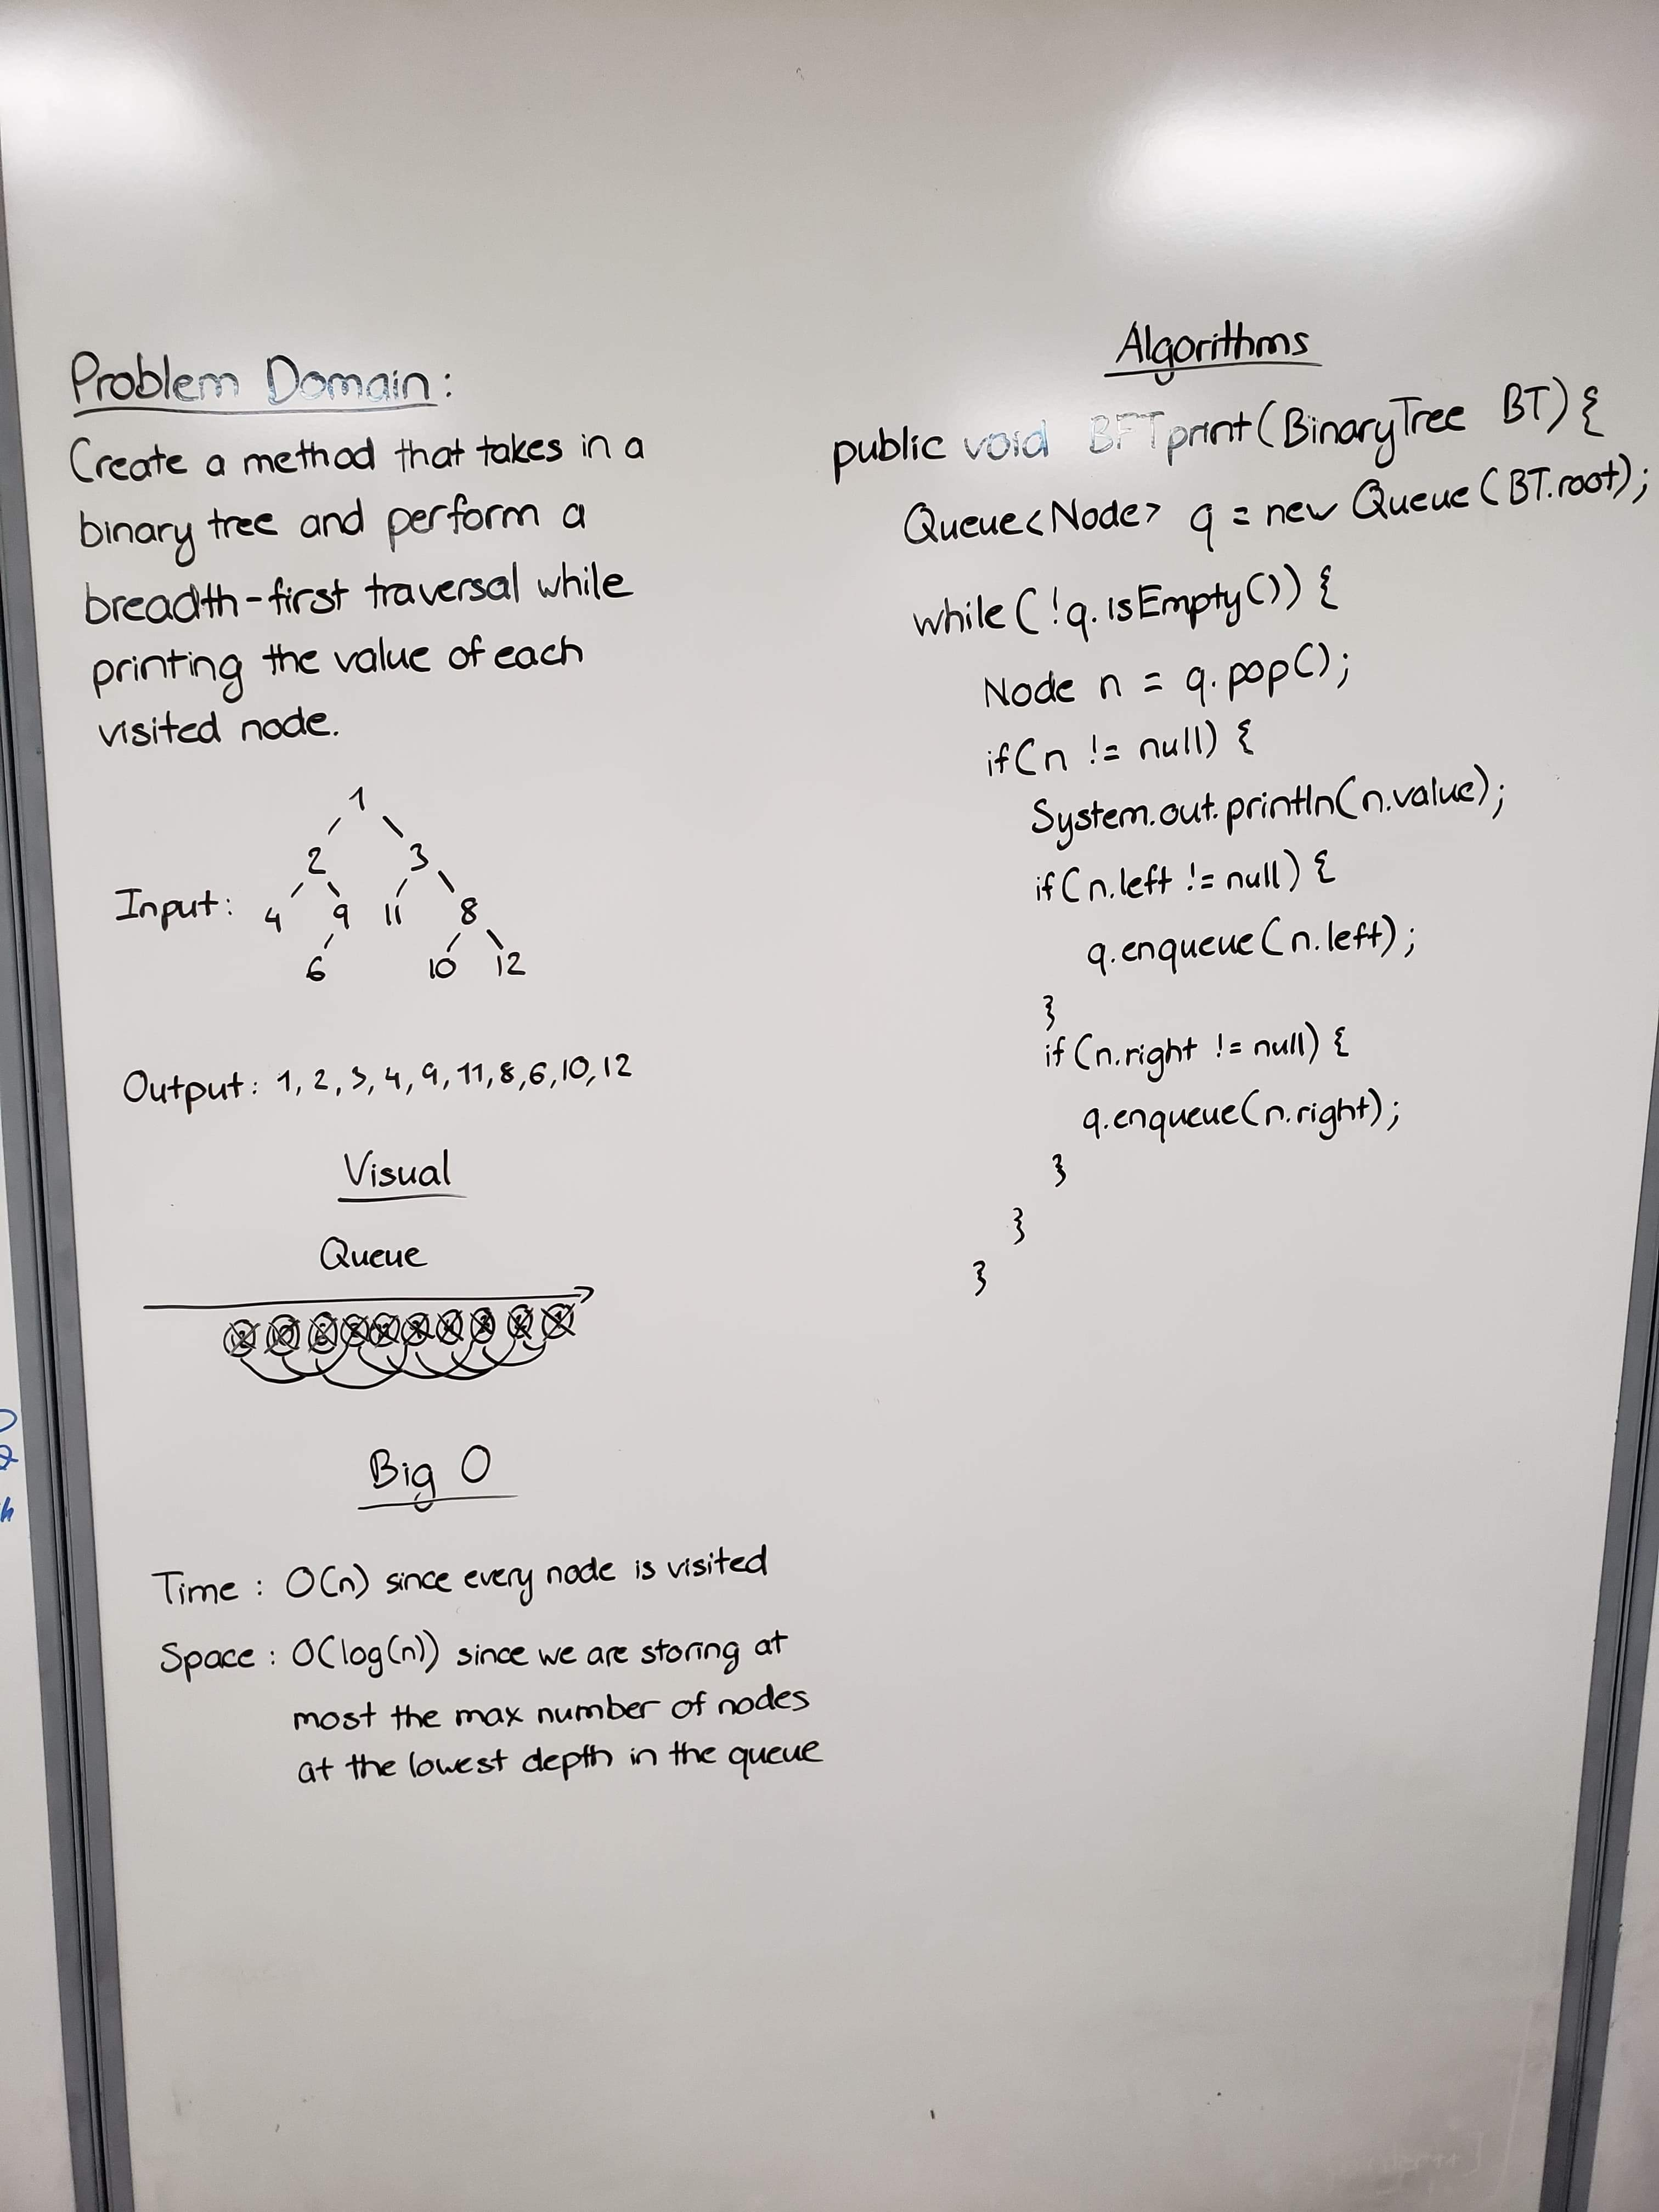 Problem Domain:
Create a method that takes in a
binary tree and perform a
breadth-first traversal while
printing the value of each
visited node.
1
2 3
Input: 4 9 11 8
6 10 12
Output: 1, 2, 3, 4, 9, 11, 8, 6, 10, 12
Visual
Queue
Big O
Time: O(n) since every node is visited
Space: O(log(n)) since we are storing at
most the max number of nodes
at the lowest depth in the queue
Algorithms
public void BFTprint(BinaryTree BT){
Queue<Node> q = new Queue(BT.root);
while(!q.isEmpty()) {
Node n = q.pop();
if(n != null) {
System.out.println(n.value);
if(n.left != null) {
q.enqueue(n.left);
}
if(n.right != null) {
q.enqueue(n.right);
}
}
}